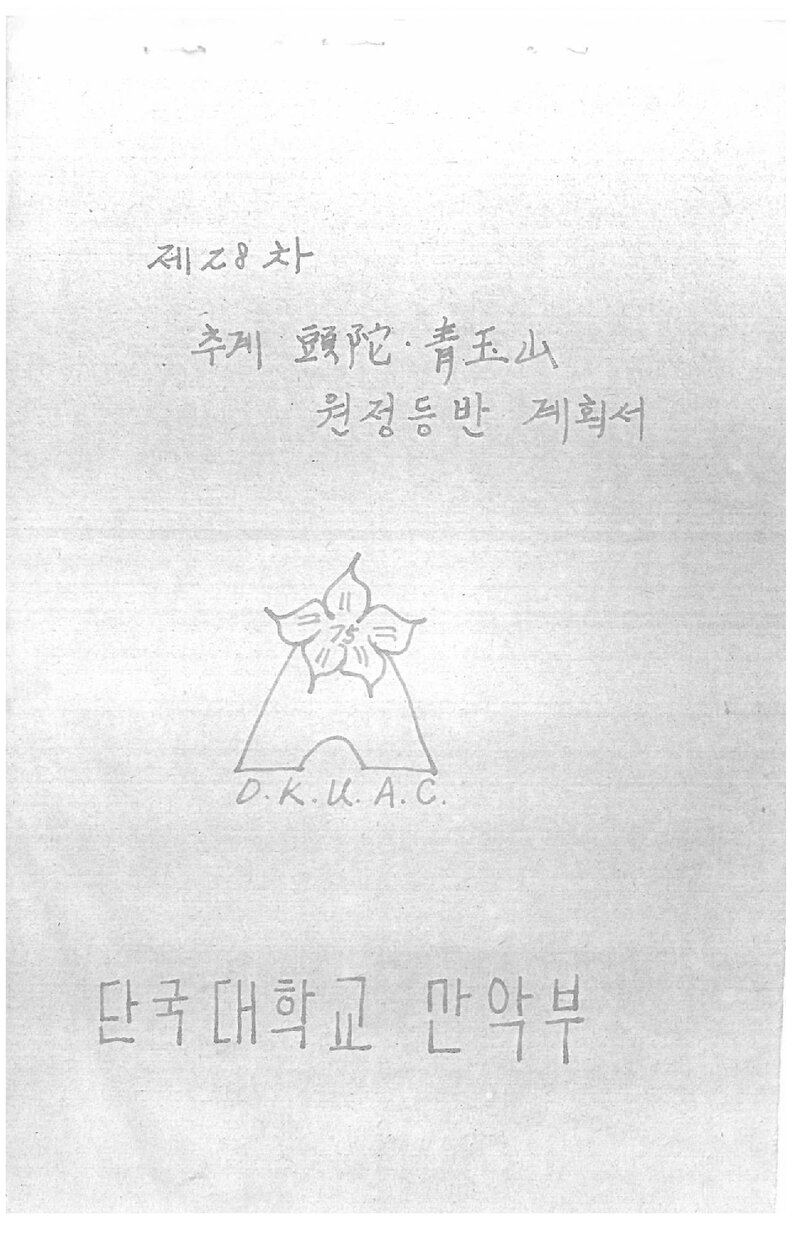 제28차
추계 頭陀·靑玉山
원정등반 계획서
75
D.K.U.A.C.
단국대학교 만악부